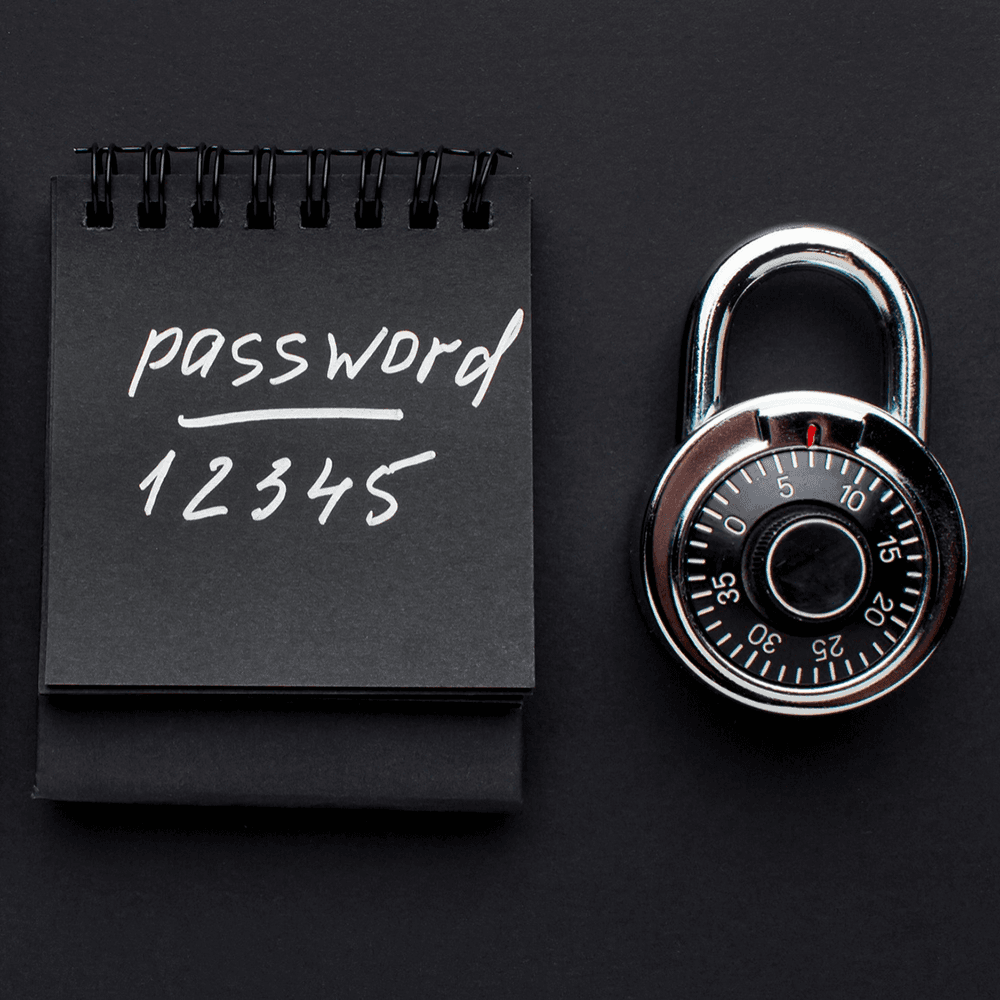 password
12345
0
5
10
15
20
25
30
35